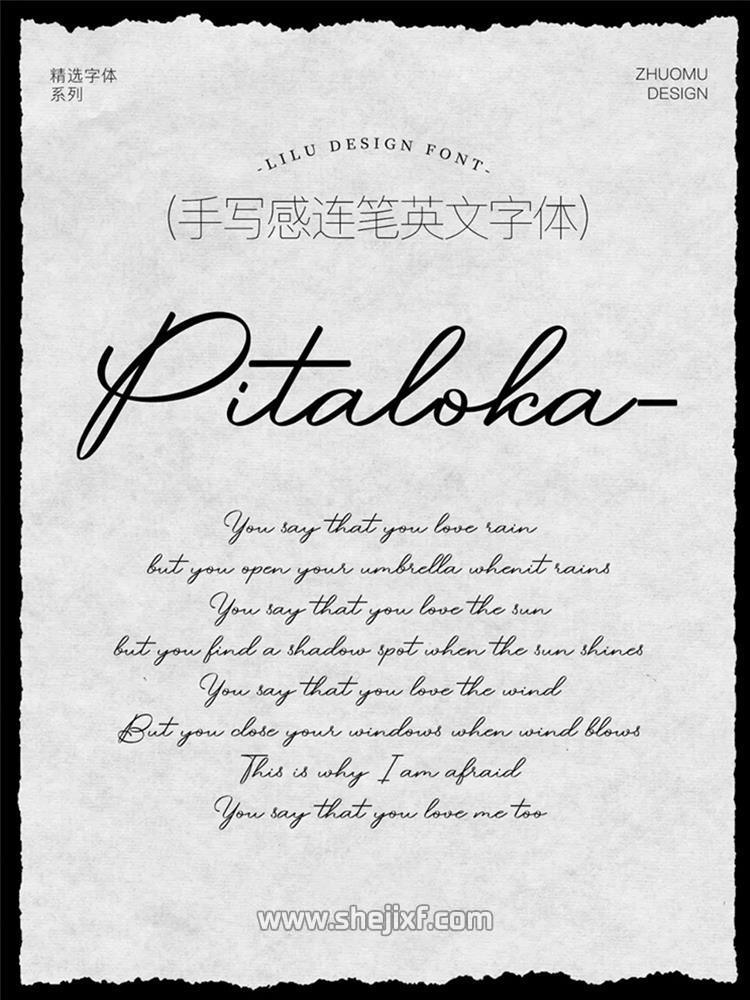 精选字体
系列
ZHUOMU
DESIGN
-LILU DESIGN FONT-
(手写感连笔英文字体)
Pitaloka-
You say that you love rain
but you open your umbrella whenit rains
You say that you love the sun
but you find a shadow spot when the sun shines
You say that you love the wind
But you close your windows when wind blows
This is why I am afraid
You say that you love me too
www.shejixf.com